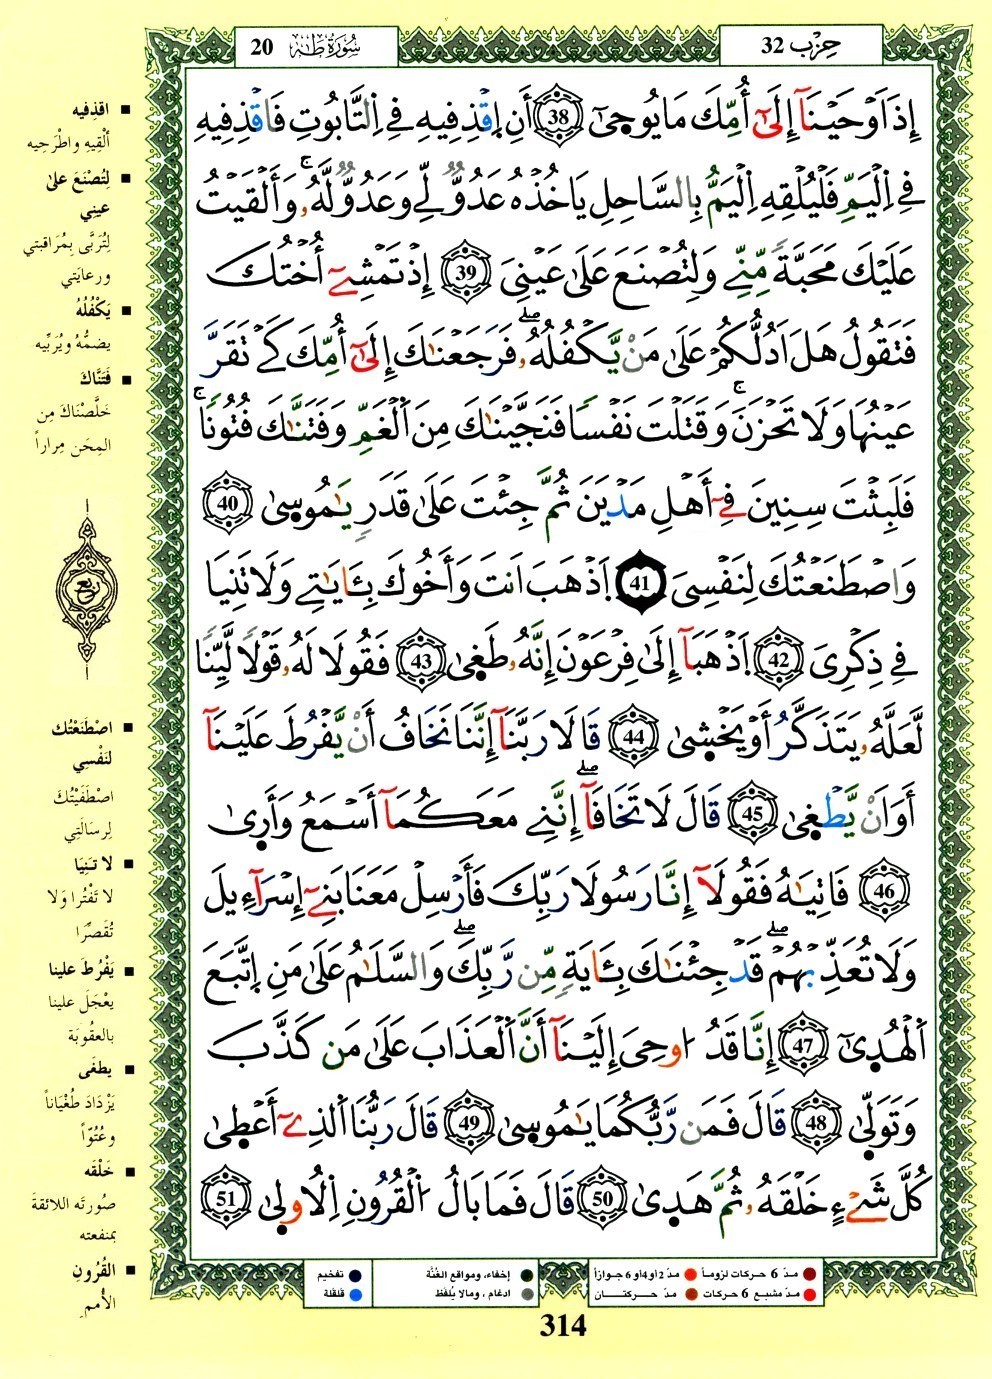 حِزْب 32
سُورَةُ طَهَ 20
إِذَ اَوْحَيْنَآ إِلَىٰٓ أُمِّكَ مَا يُوحَىٰٓ 38 أَنِ اِقْذِفِيهِ فِے اِلتَّابُوتِ فَاقْذِفِيهِ
فِے اِلْيَمِّ فَلْيُلْقِهِ اِلْيَمُّ بِالسَّاحِلِ يَاخُذْهُ عَدُوٌّ لِّے وَعَدُوٌّ لَّهُۥ وَأَلْقَيْتُ
عَلَيْكَ مَحَبَّةً مِّنِّے وَلِتُصْنَعَ عَلَىٰ عَيْنِيَ 39 إِذْ تَمْشِےٓ أُخْتُكَ
فَتَقُولُ هَلَ اَدُلُّكُمْ عَلَىٰ مَنْ يَّكْفُلُهُۥ فَرَجَعْنَٰكَ إِلَىٰٓ أُمِّكَ كَے تَقَرَّ
عَيْنُهَا وَلَا تَحْزَنَ وَقَتَلْتَ نَفْساً فَنَجَّيْنَٰكَ مِنَ اَلْغَمِّ وَفَتَنَّٰكَ فُتُوناً
فَلَبِثْتَ سِنِينَ فِےٓ أَهْلِ مَدْيَنَ ثُمَّ جِئْتَ عَلَىٰ قَدَرٍ يَٰمُوسَىٰ 40
وَاصْطَنَعْتُكَ لِنَفْسِيَ 41 اَذْهَبَ اَنتَ وَأَخُوكَ بِـَٔايَٰتِے وَلَا تَنِيَا
فِے ذِكْرِيَ 42 اَذْهَبَآ إِلَىٰ فِرْعَوْنَ إِنَّهُۥ طَغَىٰ 43 فَقُولَا لَهُۥ قَوْلاً لَّيِّناً
لَّعَلَّهُۥ يَتَذَكَّرُ أَوْ يَخْشَىٰ 44 قَالَا رَبَّنَآ إِنَّنَا نَخَافُ أَنْ يَّفْرُطَ عَلَيْنَآ
أَوَ اَنْ يَّطْغَىٰ 45 قَالَ لَا تَخَافَآ إِنَّنِے مَعَكُمَآ أَسْمَعُ وَأَرَىٰ
46 فَاتِيَٰهُ فَقُولَآ إِنَّا رَسُولَا رَبِّكَ فَأَرْسِلْ مَعَنَا بَنِےٓ إِسْرَآءِيلَ
وَلَا تُعَذِّبْهُمْ قَدْ جِئْنَٰكَ بِـَٔايَةٍ مِّن رَّبِّكَ وَالسَّلَٰمُ عَلَىٰ مَنِ اِتَّبَعَ
اَلْهُدَىٰٓ 47 إِنَّا قَدُ اوحِيَ إِلَيْنَآ أَنَّ اَلْعَذَابَ عَلَىٰ مَن كَذَّبَ
وَتَوَلَّىٰ 48 قَالَ فَمَن رَّبُّكُمَا يَٰمُوسَىٰ 49 قَالَ رَبُّنَا اَلذِےٓ أَعْطَىٰ
كُلَّ شَےْءٍ خَلْقَهُۥ ثُمَّ هَدَىٰ 50 قَالَ فَمَا بَالُ اُلْقُرُونِ اِلُاولَىٰ 51
■ اقذِفيه
ألْقِيهِ واطْرَحِيه
■ لِتُصْنَعَ علىٰ
عيني
لِتُرَبَّى بِمُرَاقبتي
ورعايَتي
■ يَكْفُلُهُ
يضمُّهُ ويُرَبِّيه
■ فَتَنَّاكَ
خَلَّصْنَاكَ مِن
المِحَن مِراراً
ربع
■ اصْطَنَعْتُك
لنَفْسِي
اصْطَفَيْتُكَ
لِرسَالَتِي
■ لا تَنِيَا
لا تَفْتُرا وَلا
تُقَصِّرَا
■ يَفْرُطَ علينا
يعْجَلَ علينا
بالعقُوبَة
■ يطغَى
يَزْدَادَ طُغْيَاناً
وعُتُوّاً
■ خَلْقه
صُورتَه اللائقةَ
بمنفعته
■ القُرُونِ
الأُممِ
مدّ 6 حركات لزوماً
مدّ 2 أو 4 أو 6 جوازاً
إخفاء، ومواقع الغُنَّة
تفخيم
مدّ مشبع 6 حركات
مدّ حركتان
ادغام ، ومالا يُلفَظ
قلقلة
314